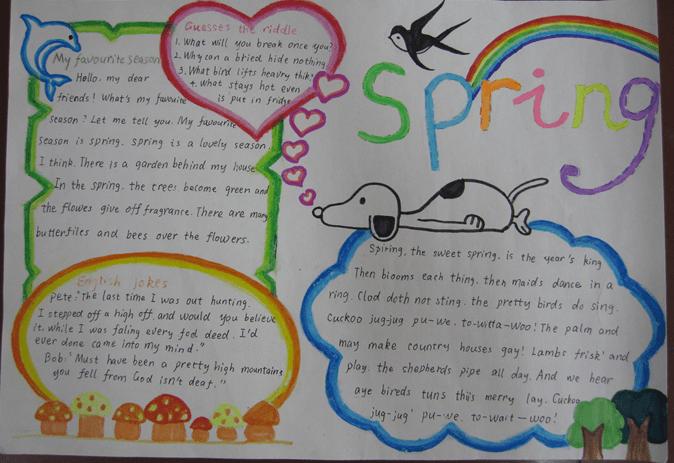 Spring
My favourite season
Hello. my dear
friends! What's my favuire
season? Let me tell you. My favourite
season is spring. spring is a lovely season.
I think. There is a garden behind my house
In the spring. the trees become green and
the flowes give off fragrance. There are many
butterfiles and bees over the flowers.
Guesses the riddle
1. What will you break once you?
2. Why can a bried hide nothing
3. What bird lifts heavry thik?
4. What stays hot even
is put in fridge
English jokes
Pete: "The last time I was out hunting.
I stepped off a high off. and would you believe
it. while I was faling every fool deed. I'd
ever done came into my mind."
Bob: 'Must have been a pretty high mountains
you fell from God isn't deaf."
Spiring, the sweet spring. is the year's king
Then blooms each thing. then maids dance in a
ring. Clod doth not sting. the pretty birds do sing.
Cuckoo jug-jug pu-we. to-witta-woo! The palm and
may make country houses gay! Lambs frisk' and
play. the shepherds pipe all day. And we hear
aye bireds tuns this merry lay. Cuckoo
jug-jug' pu-we. to-wait-woo!